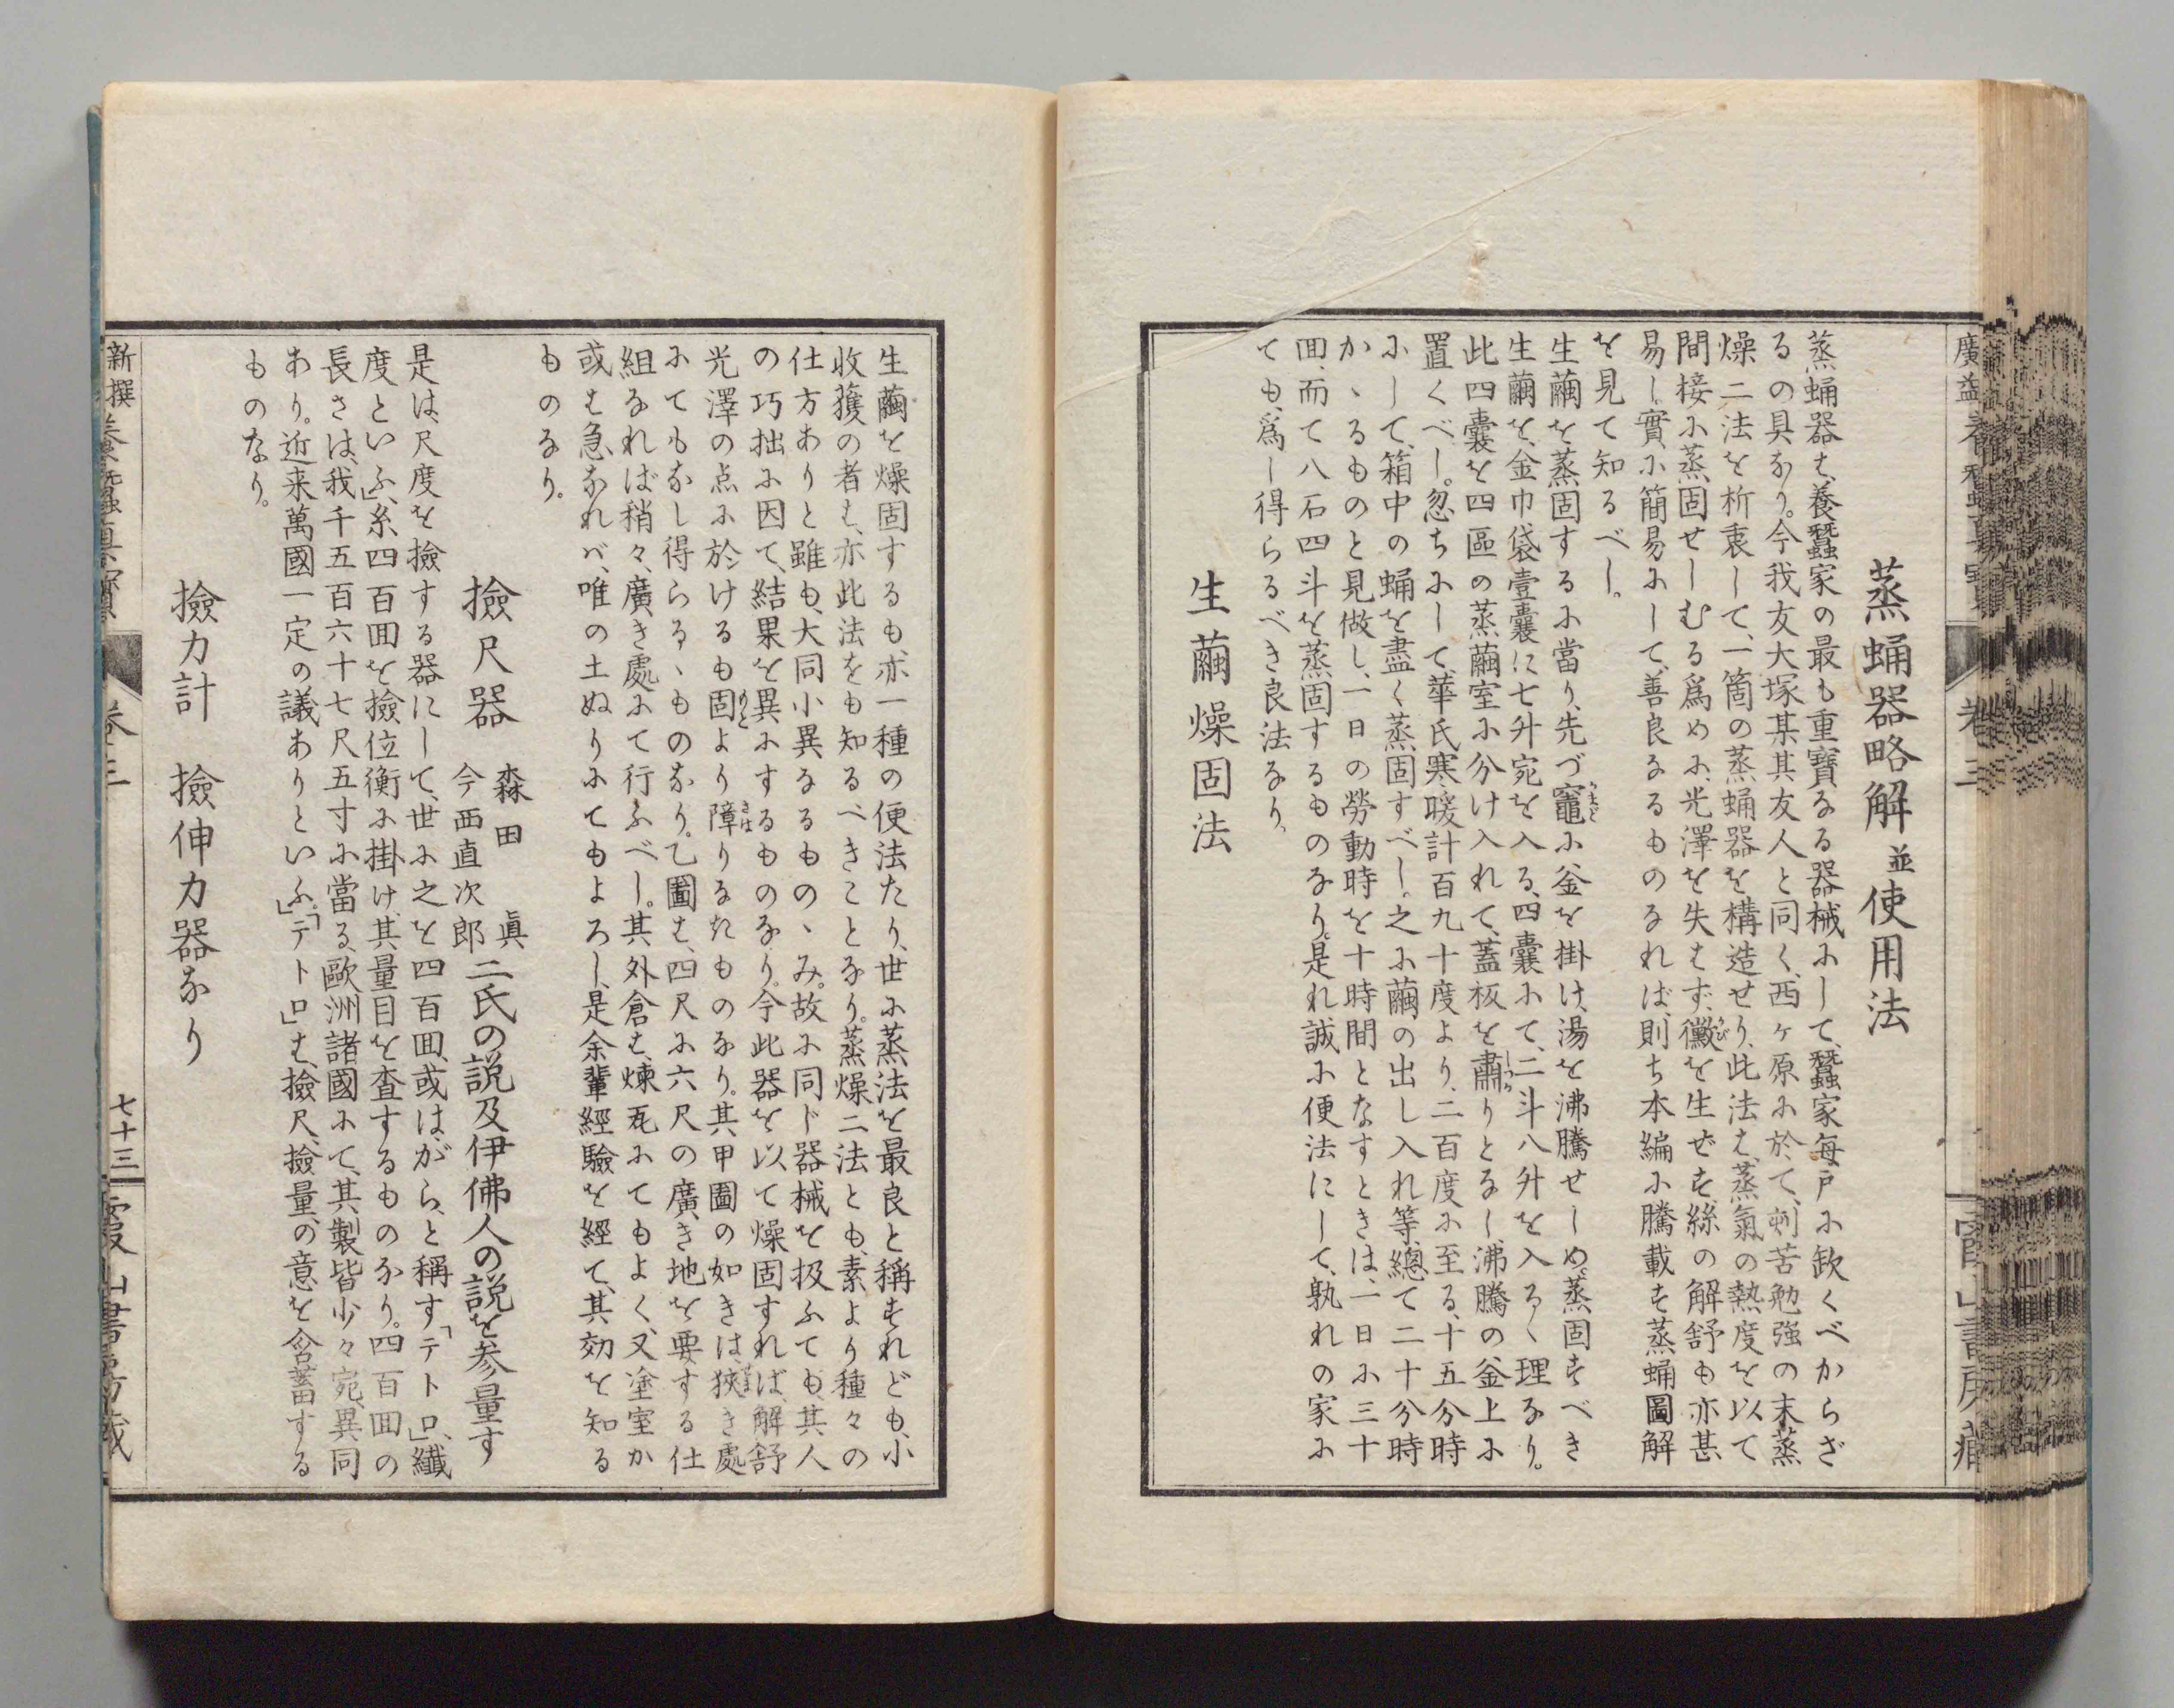 蒸蛹器略解並使用法
蒸蛹器は、養蠶家の最も重寶なる器械にして、蠶家毎戸に欽くべからざ
るの具なり。今我友大塚某其友人と同く、西ヶ原に於て、刺苦勉強の末蒸
燥二法を折衷して、一箇の蒸蛹器を構造せり、此法は、蒸氣の熱度を以て
間接に蒸固せしむる爲めに、光澤を失はず、黴を生ぜず、絲の解舒も亦甚
易し。實に簡易にして、善良なるものなれば、則ち本編に騰載す蒸蛹圖解
を見て知るべし。
生繭を蒸固するに當り、先づ竈に釜を掛け、湯を沸騰せしめ、蒸固すべき
生繭を、金巾袋壹囊に七升宛を入る、四囊にて、二斗八升を入るゝ理なり。
此四囊を四區の蒸繭室に分け入れて、蓋板を肅りとなし、沸騰の釜上に
置くべし。忽ちにして、華氏寒暖計百九十度より、二百度に至る、十五分時
にして、箱中の蛹を盡く蒸固すべし。之に繭の出し入れ等、總て二十分時
かゝるものと見做し、一日の勞動時を十時間となすときは、一日に三十
囬、而て八石四斗を蒸固するものなり。是れ誠に便法にして、孰れの家に
ても、爲し得らるべき良法なり、
生繭燥固法
生繭を燥固するも、亦一種の便法たり、世に蒸法を最良と稱すれども、小
收獲の者は、亦此法をも知るべきことなり。蒸燥二法とも、素より種々の
仕方ありと雖も、大同小異なるものゝみ。故に同ド器械を扱ふても、其人
の巧拙に因て、結果を異にするものなり。今此器を以て燥固すれば、解舒
光澤の点に於けるも固より障りなきものなり。其甲圖の如きは、狹き處
にてもなし得らるゝものなり。乙圖は、四尺に六尺の廣き地を要する仕
組なれば稍々、廣き處にて行ふべし。其外倉は、煉瓦にてもよく、又塗室か
或は急なれバ、唯の土ぬりにてもよろし、是余輩經驗を經て、其効を知る
ものなり。
撿尺器 森田眞 今西直次郎 二氏の説及伊佛人の説を参量す
是は、尺度を撿する器にして、世に之を四百囬、或は、がら、と稱す「テトロ」、纎
度といふ」、糸四百囬を撿位衡に掛け、其量目を査するものなり。四百囬の
長さは、我千五百六十七尺五寸に當る、歐洲諸國にて、其製皆少々宛、異同
あり。近来萬國一定の議ありといふ。」「テトロ」は、撿尺、撿量、の意を含蓄する
ものなり。
撿力計 撿伸力器なり
新撰養蠶眞寶 卷三 七十三